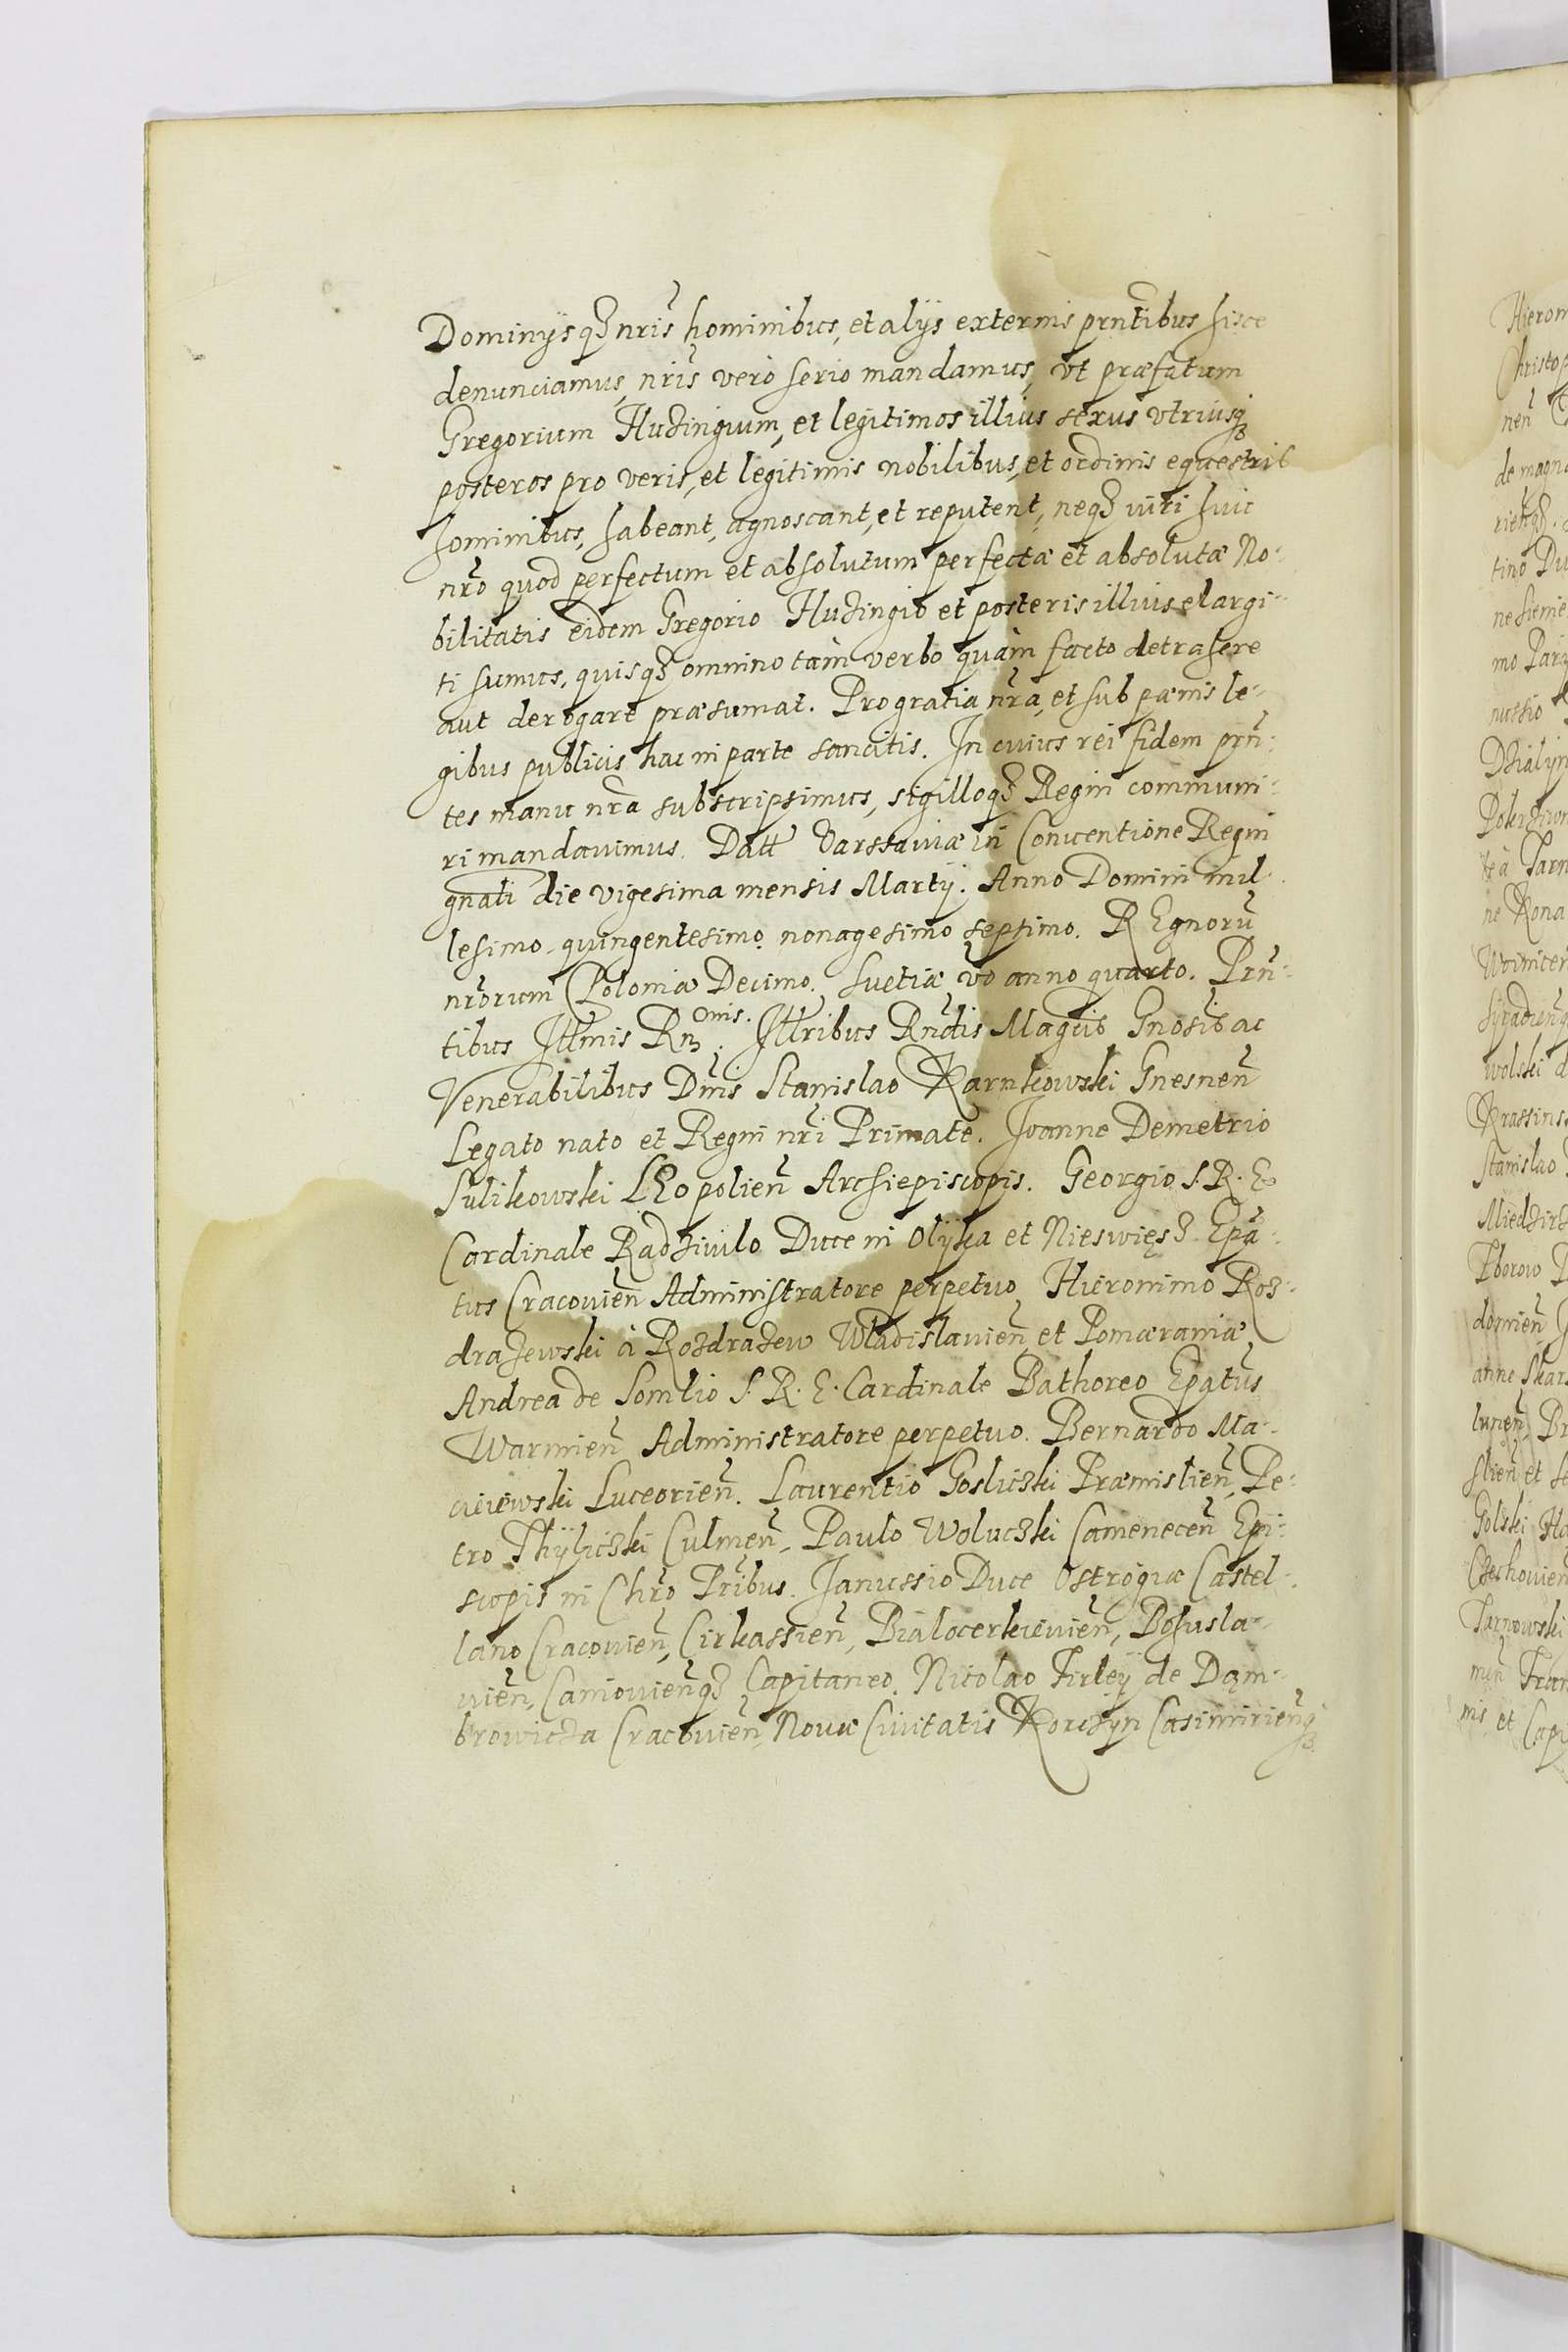 Dominÿsq3 nr̃is hominibus, et alÿs externis prñtibus hisce
denunciamus, nr̃is verò serio mandamus, vt præfatum
Gregorium Hudingium, et legitimos illius sexus vtriusq3
posteros pro veris, et legitimis nobilibus, et ordinis equestris
hominibus, habeant, agnoscant, et reputent, neq3 iuri huic
nr̃o quod perfectum et absolutum perfectæ et absolutæ No-
bilitatis eidem Gregorio Hudingio et posteris illius elargi-
ti sumus, quisq3 omnino tàm verbo quàm facto detrahere
aut derogare præsumat. Pro gratia nr̃a, et sub pœnis le-
gibus publicis hac in parte sancitis. In cuius rei fidem prñ-
tes manu nr̃a subscripsimus, sigilloq3 Regni communi-
ri mandauimus. Datt Varssauiæ in Conuentione Regni
gnali die vigesima mensis Martÿ. Anno Domini mil-
lesimo quingentesimo nonagesimo septimo. REgnorũ
nr̃orum Poloniæ Decimo. Suetiæ ṽo anno quarto. Prñ-
tibus Jllmis Rn3 Omis. Jllribus Rñdis Magcis Gnosis ac
Venerabilibus Dñis Stanislao Karnkowski Gnesneñ
Legato nato et Regni nr̃i Primate. Joanne Demetrio
Sulikowski LEopolieñ Archiepiscopis. Georgio S. R. E
Cardinale Radziuilo Duce in Olÿka et Nieswięz Ep̃a-
tus Cracouieñ Administratore perpetuo. Hieronimo Roz-
drażewski à Rozdrażew Wladislauieñ et Pomæraniæ
Andrea de Somlio S. R. E. Cardinale Bathoreo Ep̃atus
Warmieñ Administratore perpetuo. Bernardo Ma-
cieiewski Luceorieñ. Laurentio Goslicżki Præmislieñ, Pe-
tro Thÿlicżki Culmeñ, Paulo Woluczki Cameneceñ Epi-
scopis in Chr̃o Pr̃ibus. Janussio Duce Ostrogiæ Castel-
lano Cracouieñ, Cirkassieñ, Bialocerkieuieñ, Bohusla-
uieñ, Caniouieñq3 Capitaneo. Nicolao Firleÿ de Dąm-
browicza Cracouieñ, Nouæ Ciuitatis Korczÿn Casimirieñq3